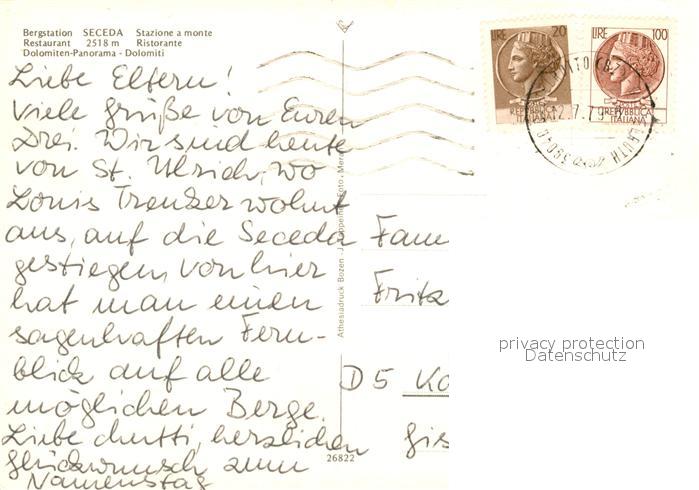 Bergstation SECEDA Stazione a monte
Restaurant 2518 m Ristorante
Dolomiten-Panorama - Dolomiti
LIRE 20
REPUBBLICA
ITALIANA
LIRE 100
REPUBBLICA
ITALIANA
Liebe Eltern!
Viele Grüße von Euren
Drei. Wir sind heute
von St. Ulrich, wo
Louis Trenker wohnt
aus, auf die Seceda
gestiegen, von hier
hat man einen
sagenhaften Fern-
blick auf alle
möglichen Berge.
Liebe Mutti, herzlichen
Glückwunsch zum
Namenstag
Fam
Fritz
D 5 Kö
Gis
Athesiadruck Bozen
26822
privacy protection
Datenschutz